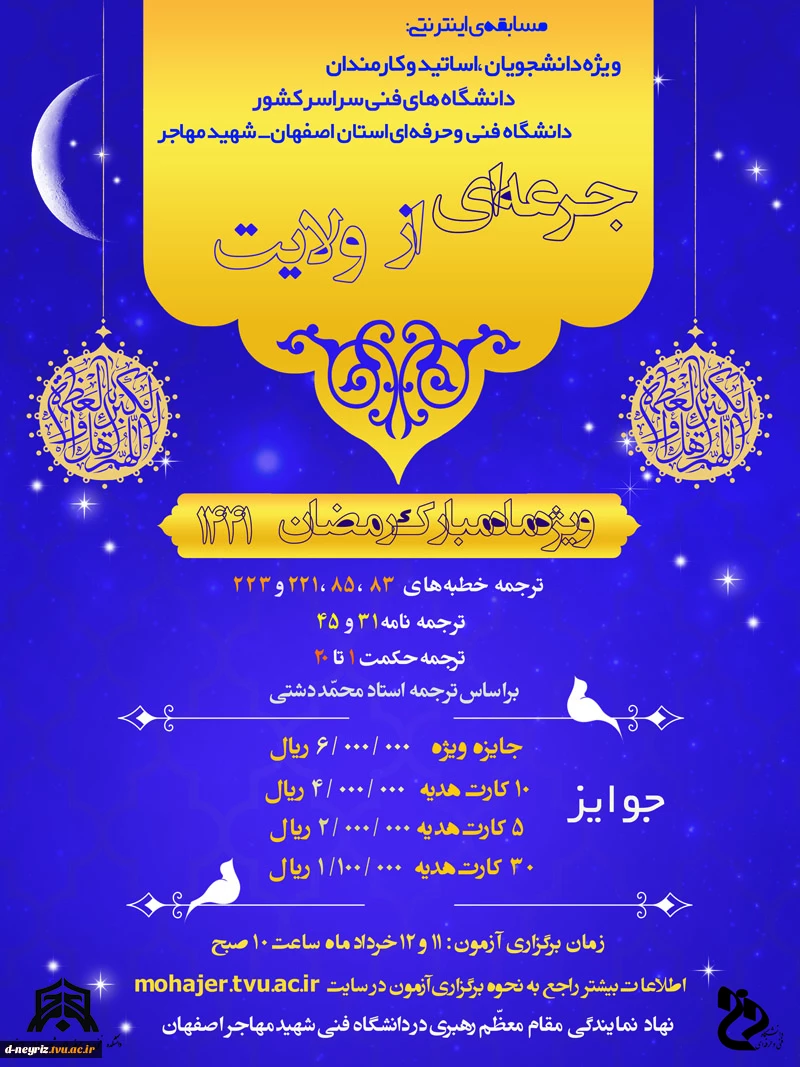 مسابقه‌ی اینترنتی:
ویژه دانشجویان ،اساتید و کارمندان
دانشگاه های فنی سراسر کشور
دانشگاه فنی و حرفه ای استان اصفهان_ شهید مهاجر
جرعه‌ای از ولایت
ویژه ماه مبارک رمضان ۱۴۴۱
ترجمه خطبه های ۸۳ ،۸۵ ،۲۲۱ و ۲۲۳
ترجمه نامه ۳۱ و ۴۵
ترجمه حکمت ۱ تا ۲۰
بر اساس ترجمه استاد محمّد دشتی
جوایز
جایزه ویژه ۶/۰۰۰/۰۰۰ ریال
۱۰ کارت هدیه ۴/۰۰۰/۰۰۰ ریال
۵ کارت هدیه ۲/۰۰۰/۰۰۰ ریال
۳۰ کارت هدیه ۱/۱۰۰/۰۰۰ ریال
زمان برگزاری آزمون : ۱۱ و ۱۲ خرداد ماه ساعت ۱۰ صبح
اطلاعات بیشتر راجع به نحوه برگزاری آزمون در سایت mohajer.tvu.ac.ir
نهاد نمایندگی مقام معظّم رهبری در دانشگاه فنی شهید مهاجر اصفهان
d-neyriz.tvu.ac.ir